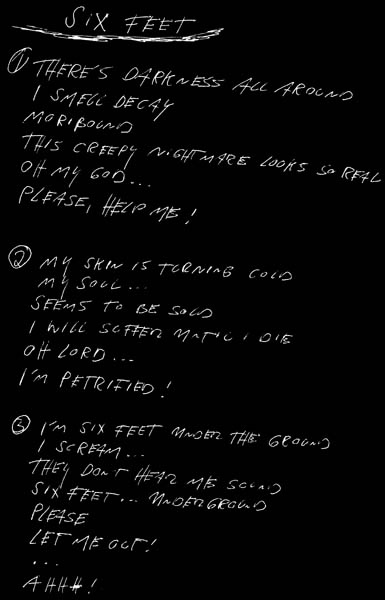 SIX FEET
1 THERE'S DARKNESS ALL AROUND
I SMELL DECAY
MORIBOUND
THIS CREEPY NIGHTMARE LOOKS SO REAL
OH MY GOD...
PLEASE, HELP ME!
2 MY SKIN IS TURNING COLD
MY SOUL...
SEEMS TO BE SOLD
I WILL SUFFER UNTIL I DIE
OH LORD...
I'M PETRIFIED!
3 I'M SIX FEET UNDER THE GROUND
I SCREAM...
THEY DON'T HEAR ME SOUND
SIX FEET... UNDERGROUND
PLEASE
LET ME OUT!
...
AHHH!